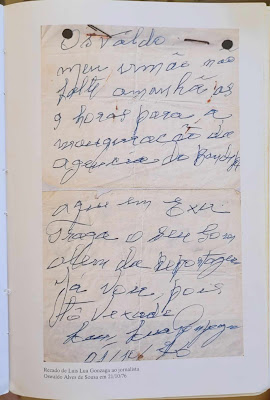 Osvaldo
meu irmão não
falte amanhã as
9 horas para a
inauguração da
agencia do
aqui em Exu
Traga o seu som
alem da reportagem
Ja vou, pois
Luiz Lua Gonzaga
Recado de Luiz Lua Gonzaga ao jornalista
Osvaldo Alves de Sousa em 21/10/76